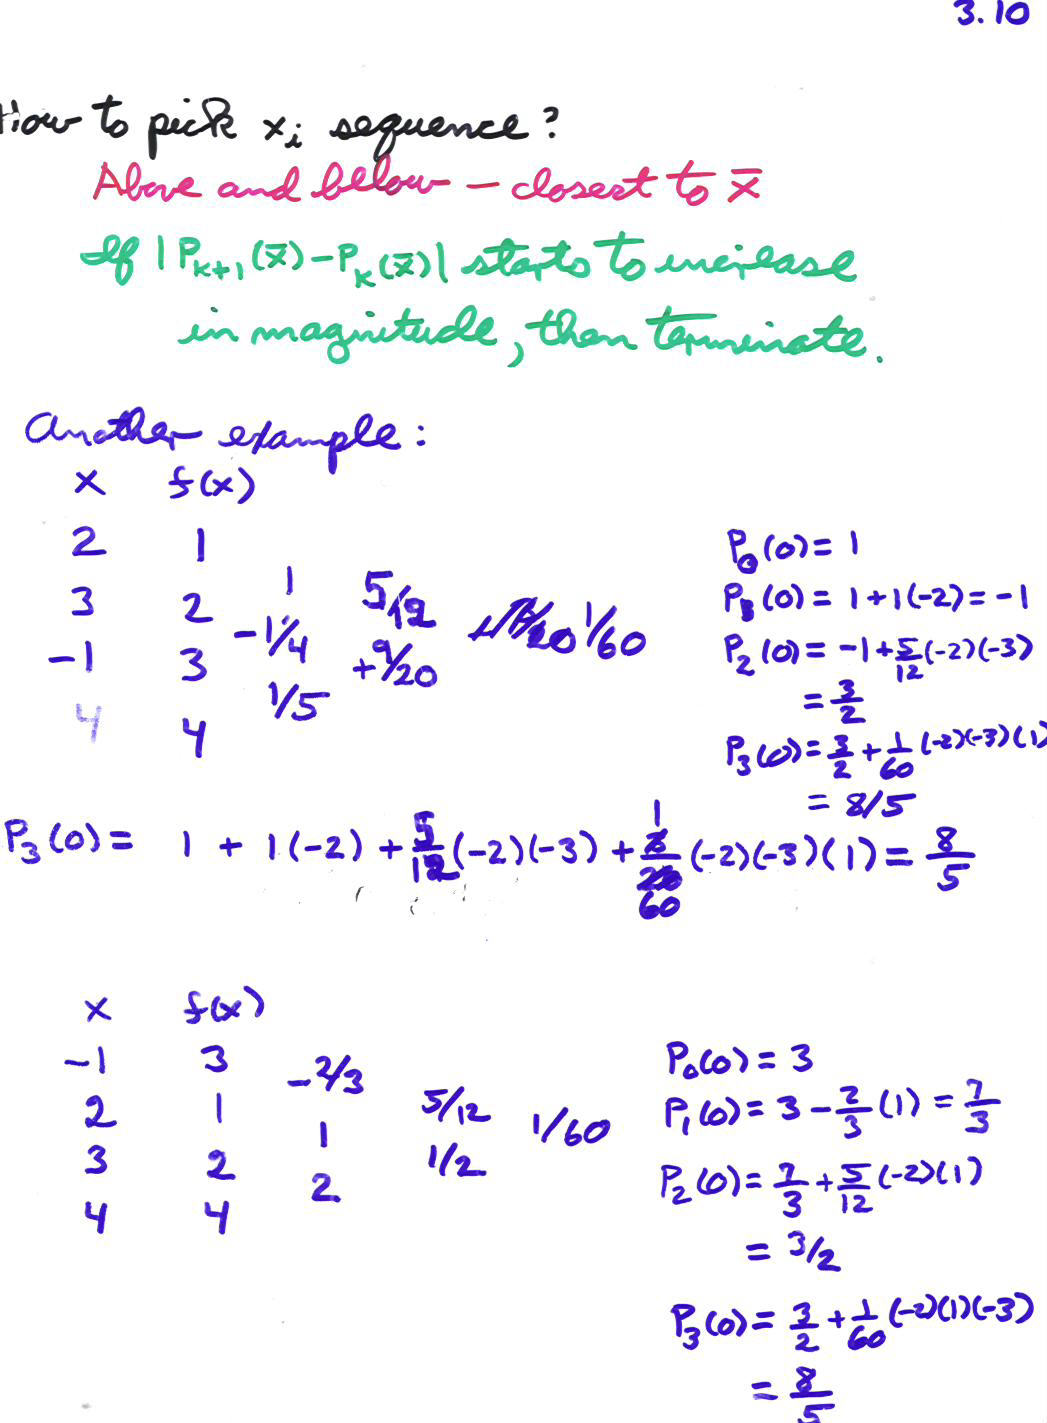 3.10
How to pick xᵢ sequence?
Above and below – closest to x̄
If |Pₖ₊₁(x̄) – Pₖ(x̄)| starts to increase
in magnitude, then terminate.
Another example:
x f(x)
2 1
1
3 2 5/12
-1/4 1/60
-1 3 +9/20
1/5
4 4
P₀(0) = 1
P₁(0) = 1 + 1(-2) = -1
P₂(0) = -1 + 5/12 (-2)(-3)
= 3/2
P₃(0) = 3/2 + 1/60 (-2)(-3)(1)
= 8/5
P₃(0) = 1 + 1(-2) + 5/12 (-2)(-3) + 1/60 (-2)(-3)(1) = 8/5
x f(x)
-1 3
-2/3
2 1 5/12
1 1/60
3 2 1/2
2
4 4
P₀(0) = 3
P₁(0) = 3 - 2/3 (1) = 7/3
P₂(0) = 7/3 + 5/12 (-2)(1)
= 3/2
P₃(0) = 3/2 + 1/60 (-2)(1)(-3)
= 8/5